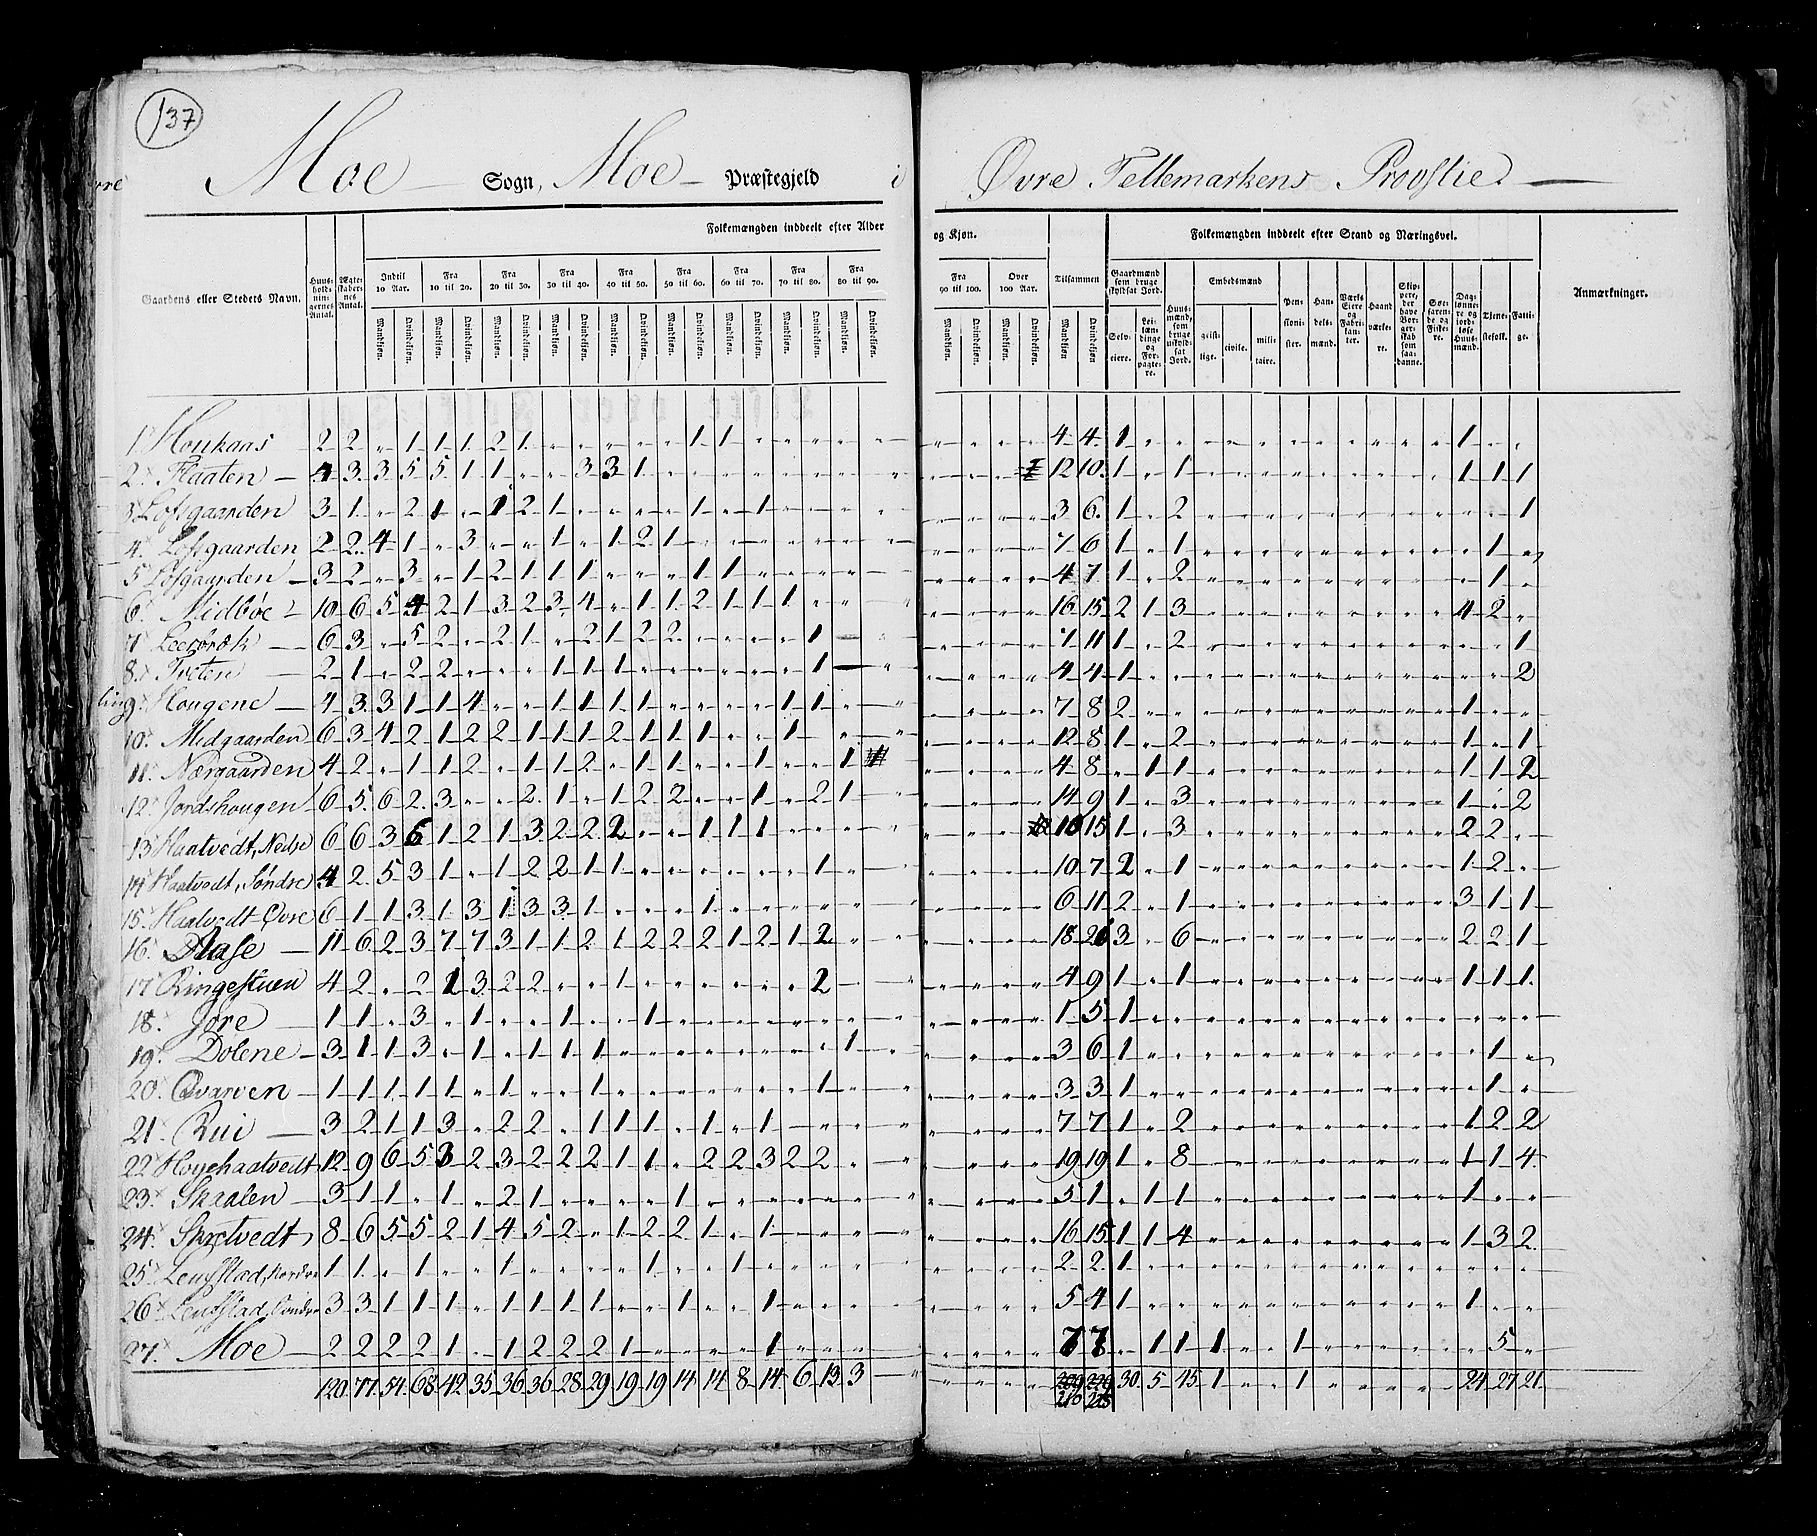 137
Moe Sogn, Moe Præstegjeld i Øvre Tellemarkens Provstie.
Folkemængden inddeelt efter Alder og Kjøn.
Folkemængden inddeelt efter Stand og Næringsvei.
Gaardens eller Stedets Navn.
Huusholdningernes Antal.
Ægteskabernes Antal.
Indtil 10 Aar.
Fra 10 til 20.
Fra 20 til 30.
Fra 30 til 40.
Fra 40 til 50.
Fra 50 til 60.
Fra 60 til 70.
Fra 70 til 80.
Fra 80 til 90.
Fra 90 til 100.
Over 100 Aar.
Tilsammen
Mandkjøn. Qvindekjøn.
Gaardmænd som bruge skyldsat Jord.
Selveiere.
Leilændinge og Forpagtere.
Huusmænd, som bruge uskyldsat Jord.
Embedsmænd
geistlige. civile. militaire.
Pensionister.
Handelsmænd.
Værks Eiere og Fabrikanter.
Haandværkere.
Skippere, der have Borgerskab som saadanne.
Søefarende og Fiskere.
Daglønnere og jordløse Huusmænd.
Tjenestefolk.
Fattige.
Anmærkninger.
1. Houkaas 2 2 " 1 1 1 2 1 " " " " " 1 1 " " " " " 4 4 1 1
2. Flaaten 4 3 3 5 5 1 1 " " 3 3 1 12 10 1 " 1 1 1 1
3. Lofsgaarden 3 1 " 2 1 " 1 2 1 " " " " 1 " 1 3 6 1 " 2 1
4. Lofsgaarden 2 2 4 1 " 3 " " 1 " 1 2 1 7 6 1 " 1 1
5. Lofgaarden 3 2 " 3 " 1 2 1 1 1 " " " 1 1 4 7 1 " 2 1
6. Midbøe 10 6 5 4 2 1 3 2 3 4 " 1 1 2 1 1 1 16 15 2 1 3 4 2
7. Leerbræk 6 3 " 5 2 " 2 1 " 2 1 2 2 " " " " 1 7 11 1 " 2 1
8. Tveten 2 1 " 2 2 " " " 1 1 1 " " " " " " 1 4 4 1 2
9. Hougene 4 3 3 1 1 4 " " 1 1 1 1 " " " " 1 1 7 8 2 1
10. Midgaarden 6 3 4 2 1 2 2 1 1 2 1 1 1 " " 1 12 8 1 " 2 1 " 1
11. Nærgaarden 4 2 " 1 1 2 " 1 1 2 " 1 1 " " 1 " " 1 4 8 " 1 1 1 1 2
12. Jordshougen 6 5 6 2 3 " " 2 1 " 1 2 2 " " 1 " 2 1 14 9 1 " 3 1 " 2
13. Haatvedt, Nedre 6 6 3 6 1 2 1 3 2 2 2 " " 1 1 1 10 15 1 " 3 2 2
14. Haatvedt, Søndre 4 2 5 3 1 " 1 2 2 1 1 " " " " " " 1 10 7 2 " 1 1 2
15. Haatvedt Øvre 6 1 1 3 1 3 1 3 3 1 " " " 1 6 11 2 " 1 3 1 1
16. 11 6 2 3 7 7 3 1 1 2 1 2 2 2 1 2 1 2 18 3 " 6 2 2 1
17. Ringestuen 4 2 " 2 1 3 2 2 " " 1 " " " " " " 2 4 9 1 " 1 1 1 1
18. Jore 1 1 " 3 " 1 " " 1 " " 1 1 5 1
19. Dolene 3 1 1 3 " 1 " 1 1 1 " " " " " " " " 1 3 6 1 1
20. Qvarven 1 1 1 1 1 " 1 " " 1 " " " " " " " 1 3 3 1 1
21. Rui 3 2 1 1 3 " 2 2 " 1 1 1 " 1 " 1 7 7 1 " 2 1 2 2
22. Hoyehaatvedt 12 9 6 5 3 2 3 2 2 2 1 1 " 2 2 3 2 2 19 19 1 " 8 1 1 4
23. Skaalen 3 1 1 " 1 " 2 1 " " " " 1 5 1 " 1 1 1
24. Skretvedt 8 6 5 5 2 1 4 5 2 " 1 2 2 1 " 1 16 15 1 1 4 1 3 2
25. Leufstad, Nordre 1 1 " 1 " " 1 " " " " 1 " " 1 2 2 1
26. Leufstad, Søndre 3 3 1 1 1 " 1 1 1 1 " " 1 " " 1 5 4 1 1
27. Moe 2 2 2 2 1 " 1 2 2 2 1 " " " " 1 7 7 " 1 1 1 " " 1 5
120 77 54 68 42 35 36 36 28 29 19 19 14 14 8 14 6 13 3 30 5 45 1 " " 1 24 27 21